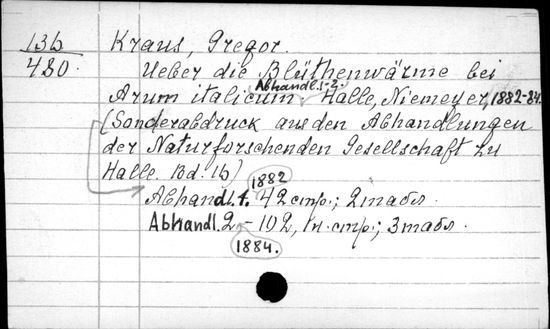 13b
480.
Kraus, Gregor.
Ueber die Blüthenwärme bei
Abhandl. 1-2.
Arum italicum Halle, Niemeyer, 1882-84.
(Sonderabdruck aus den Abhandlungen
der Naturforschenden Gesellschaft zu
Halle. Bd. 16)
1882
Abhandl. 1. 42 стр.; 2 табл.
Abhandl. 2 - 102, 1 н. стр.; 3 табл.
1884.